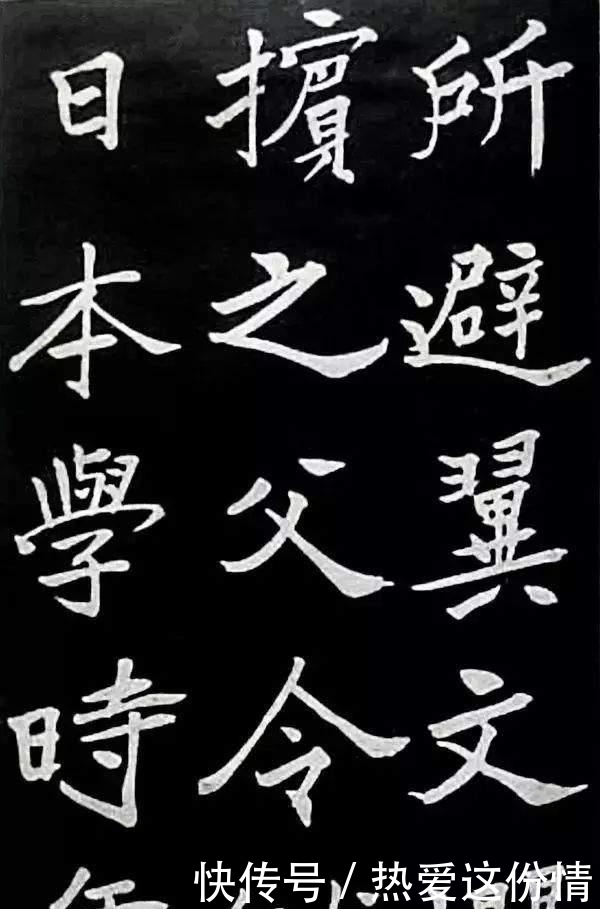 所避翼文
擯之父令
日本學時
快传号/热爱这份情